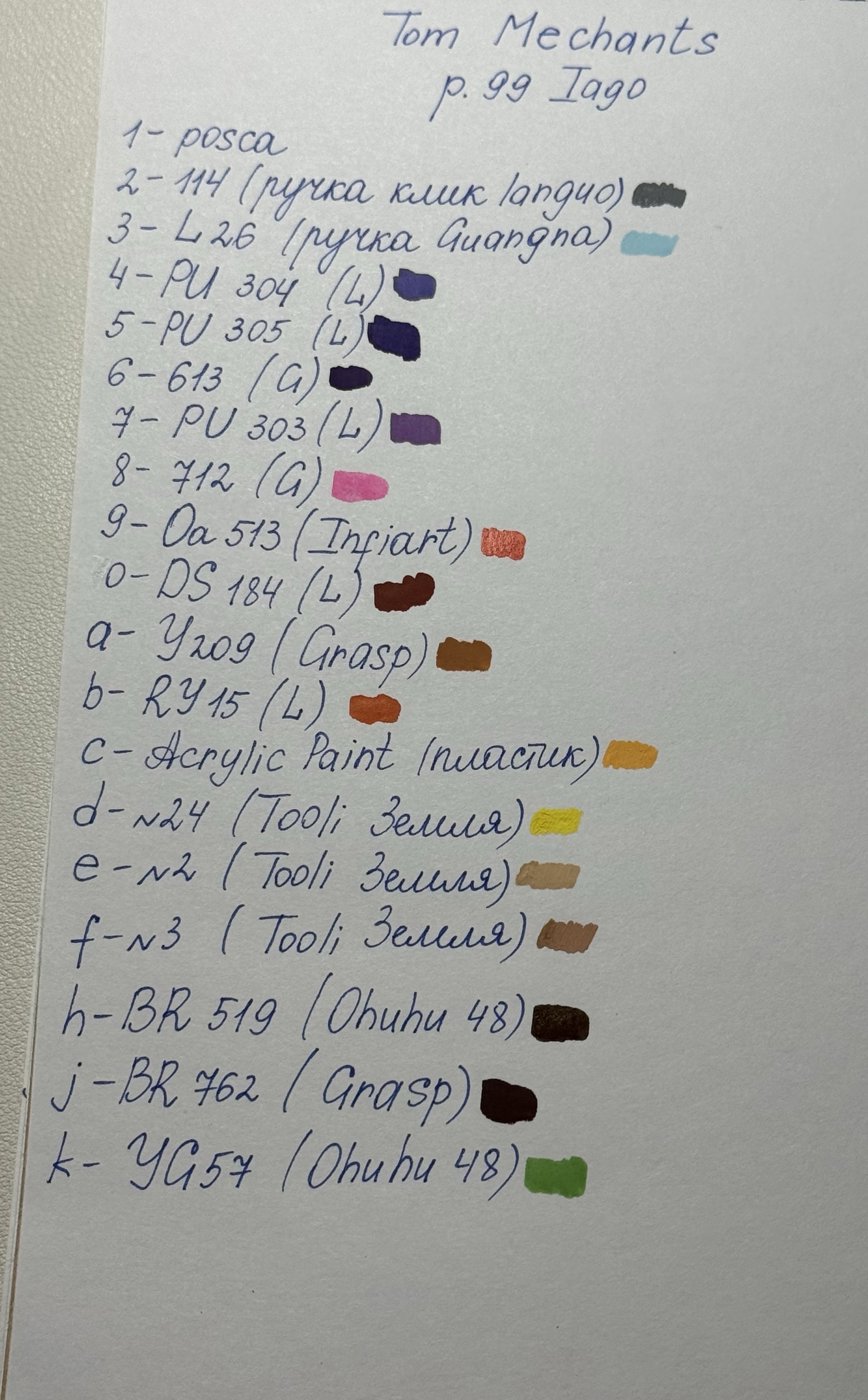 Tom Mechants
p. 99 Iago
1- posca
2- 114 (ручка клик languo)
3- L26 (ручка Guangna)
4- PU 304 (L)
5- PU 305 (L)
6- 613 (G)
7- PU 303 (L)
8- 712 (G)
9- Oa 513 (Infiart)
0- DS 184 (L)
a- Y209 (Grasp)
b- RY15 (L)
c- Acrylic Paint (пластик)
d- N24 (Tooli Земля)
e- N2 (Tooli Земля)
f- N3 (Tooli Земля)
h- BR 519 (Ohuhu 48)
j- BR 762 (Grasp)
k- YG57 (Ohuhu 48)